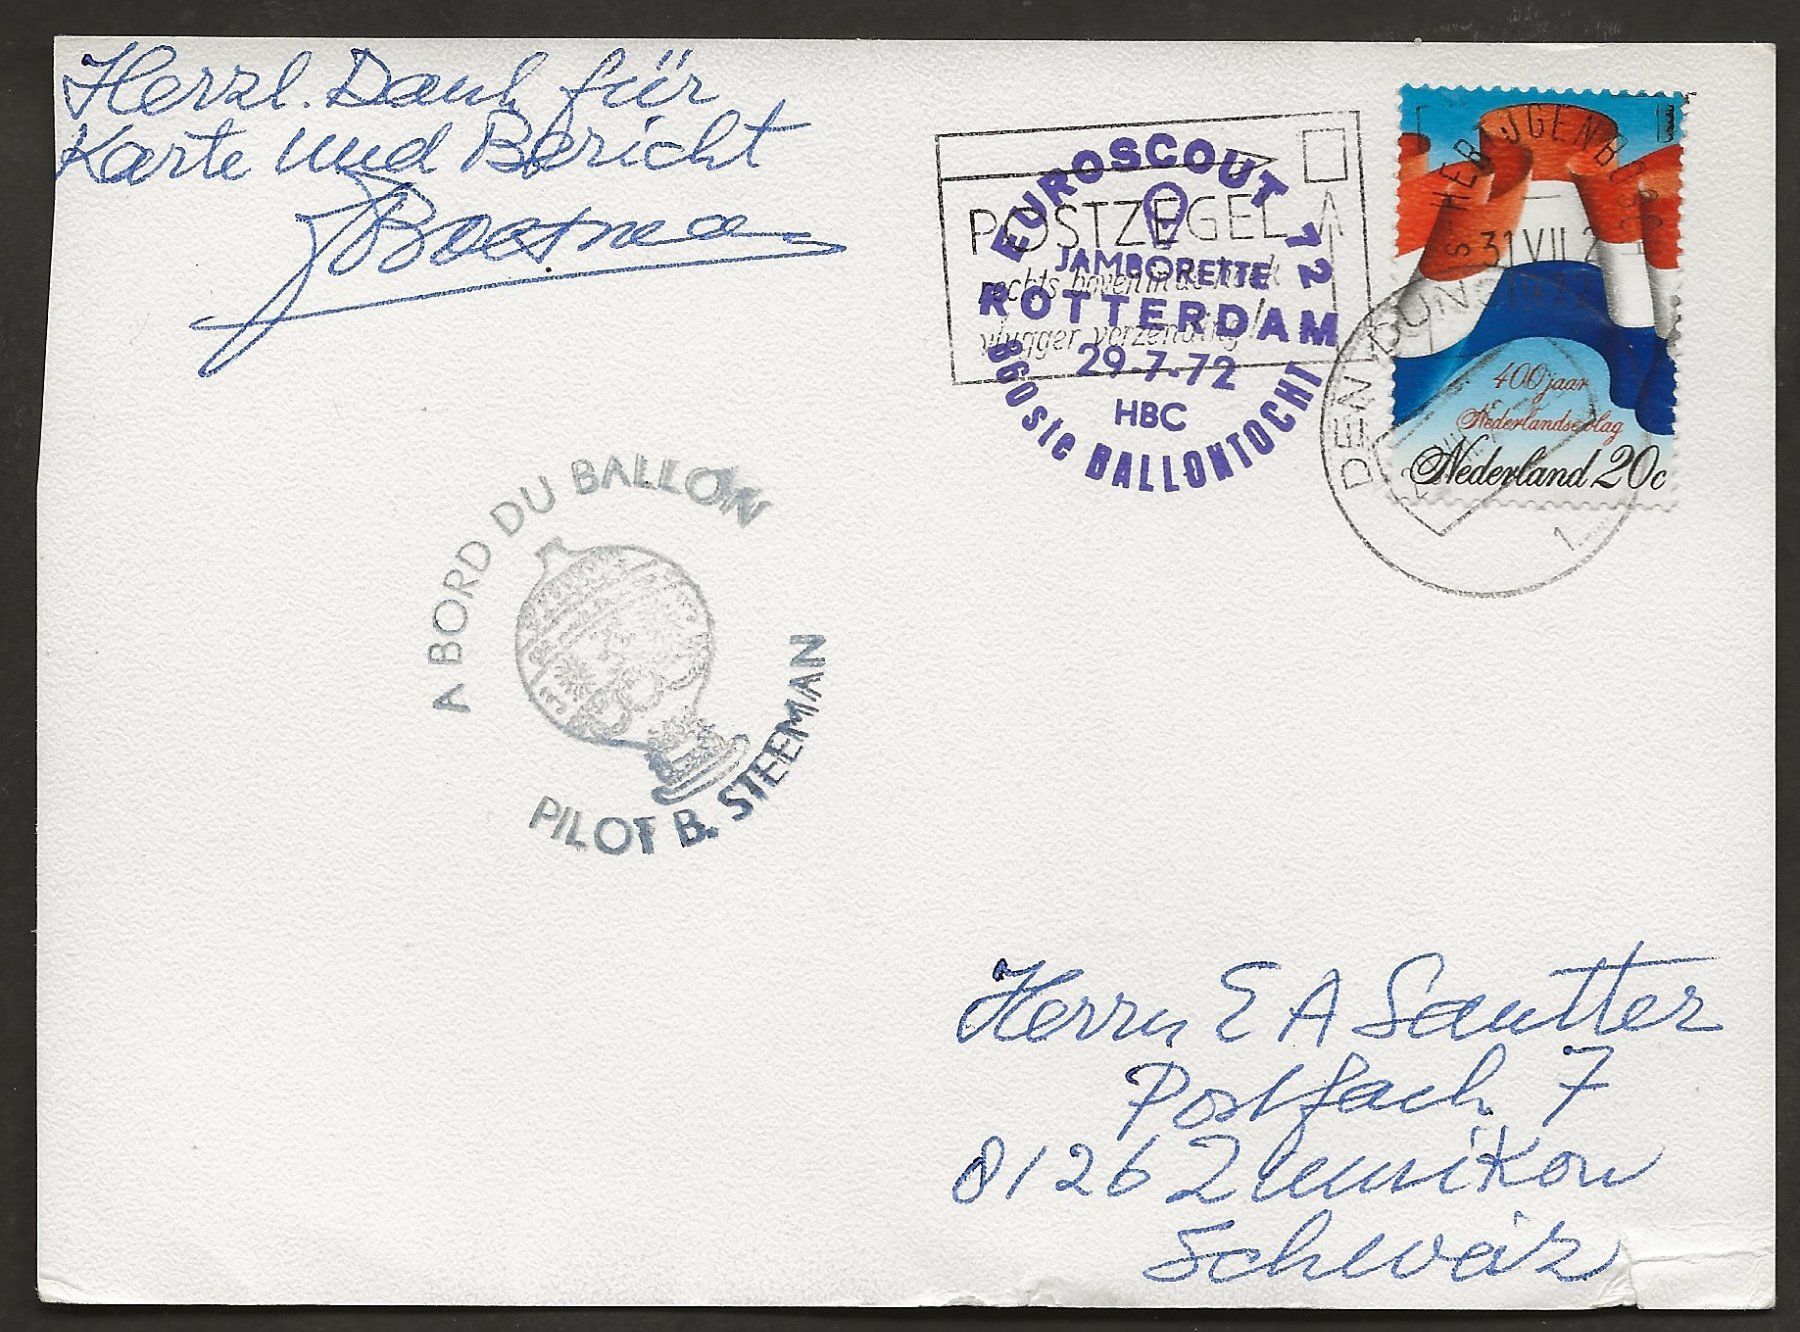 Herzl. Dank für
Karte und Bericht
Boesman
EUROSCOUT 72
JAMBORETTE
ROTTERDAM
29-7-72
HBC
860ste BALLONTOCHT
POSTZEGEL
rechts boven in de hoek
vlugger verzending!
'S-HERTOGENBOSCH
31 VII
1972
DEN DUNGEN
1
400 jaar
Nederlandse vlag
Nederland 20c
A BORD DU BALLON
PILOT B. STEEMAN
Herrn E A Sautter
Postfach 7
8126 Zumikon
Schweiz